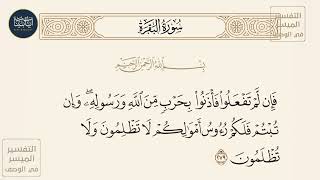 سُورَةُ البَقَرَةِ
التفسير
الميسر
في الوصف
بِسْمِ اللَّهِ الرَّحْمَٰنِ الرَّحِيمِ
فَإِن لَّمْ تَفْعَلُوا۟ فَأْذَنُوا۟ بِحَرْبٍ مِّنَ ٱللَّهِ وَرَسُولِهِۦ ۖ وَإِن
تُبْتُمْ فَلَكُمْ رُءُوسُ أَمْوَٰلِكُمْ لَا تَظْلِمُونَ وَلَا
تُظْلَمُونَ ٢٧٩
التفسير
الميسر
في الوصف